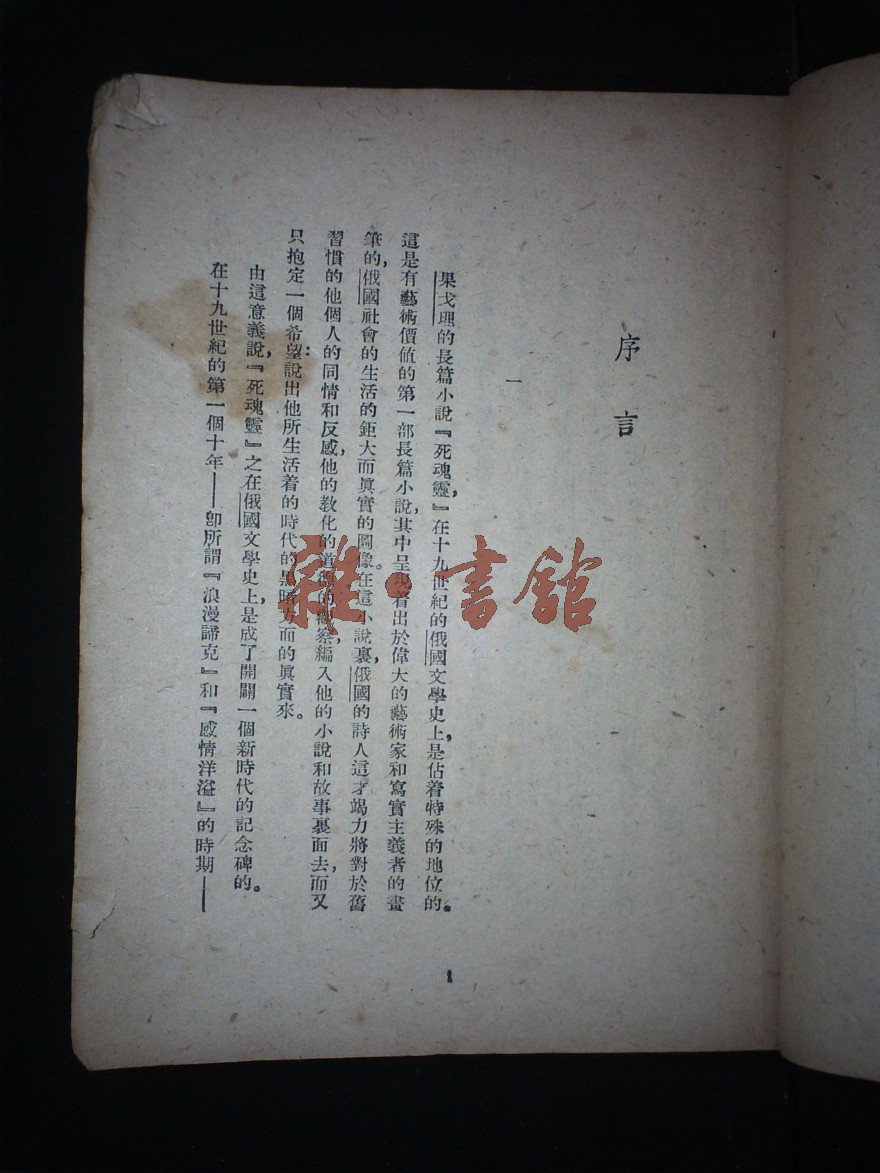 序言
一
果戈理的長篇小說『死魂靈，』在十九世紀的俄國文學史上，是佔着特殊的地位的。
這是有藝術價值的第一部長篇小說，其中呈現着出於偉大的藝術家和寫實主義者的畫
筆的，俄國社會的生活的鉅大而眞實的圖像。在這小說裏，俄國的詩人這才竭力將對於舊
習慣的他個人的同情和反感，他的敎化的道德的觀察，編入他的小說和故事裏面去，而又
只抱定一個希望：說出他所生活着的時代的黑暗方面的眞實來。
由這意義說，『死魂靈』之在俄國文學史上，是成了開闢一個新時代的記念碑的。
在十九世紀的第一個十年——卽所謂『浪漫諦克』和『感情洋溢』的時期——
1
雜·書館